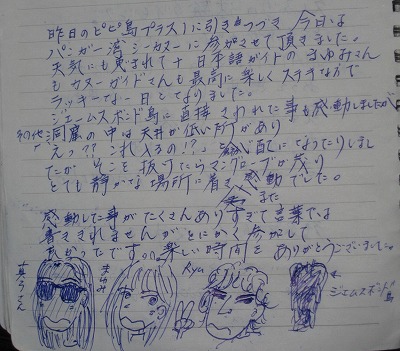 昨日のピピ島プラス1に引きつづき 今日は
パンガー湾シーカヌーに参加させて頂きました。
天気にも恵まれて+日本語ガイドのまゆみさん
もカヌーガイドさんも最高に楽しくステキなかたで
ラッキーな一日となりました。
ジェームスボンド島に直接さわれた事も感動しましたが
その他 洞窟の中は天井が低い所があり
「えっ??これ入るの!?」と心配になったりしまし
たが そこを抜けたらマングローブが茂り
とても静かな場所に着き感動でした。
また
感動した事がたくさんありすぎて言葉では
書ききれませんがとにかく参加して
よかったです。楽しい時間を ありがとうございました。
まゆみ
Ryu
ジェームスボンド島